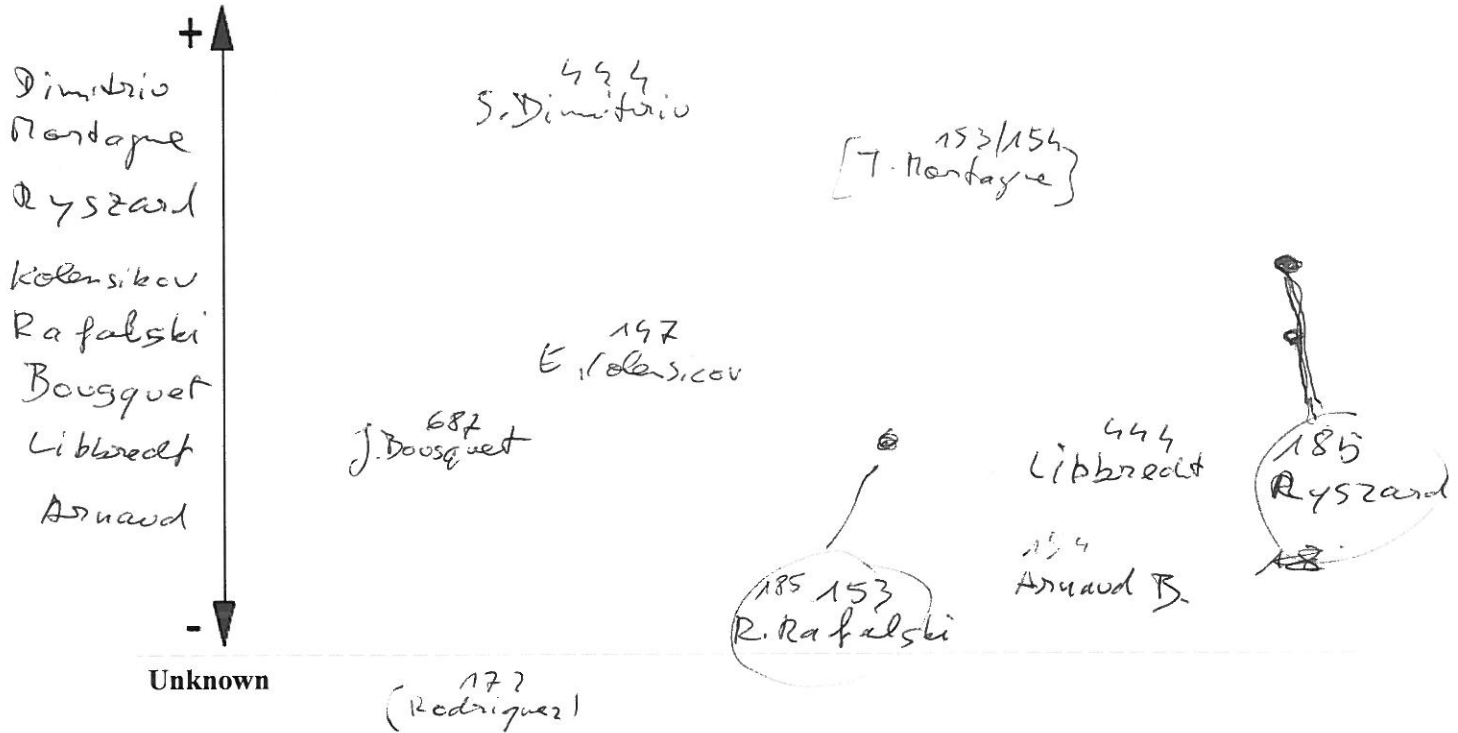 +
Dimitriu
Montagne
Ryszard
Kolensikov
Rafalski
Bousquet
Libbrecht
Arnaud
-
Unknown
444
S. Dimitriu
153/154
[T. Montagne]
147
E. Kolensicov
687
J. Bousquet
444
Libbrecht
185
Ryszard
154
Arnaud B.
185 153
R. Rafalski
172
(Rodriguez)